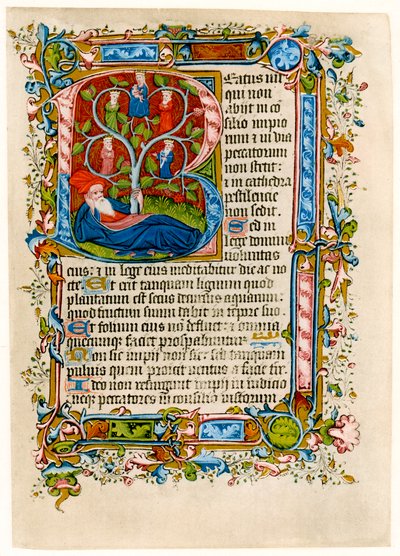 Beatus uir
qui non
abijt in co
silio impio
rum ⁊ in uia
peccatorum
non stetit:
⁊ in cathedra
pestilencie
non sedit.
Sed in
lege domini
uoluntas
eius: ⁊ in lege eius meditabitur die ac no
cte. Et erit tanquam lignum quod
plantatum est secus decursus aquarum:
quod fructum suum dabit in tempore suo.
Et folium eius non defluet: ⁊ omnia
quecumque faciet prosperabuntur.
Non sic impij non sic: sed tanquam
puluis quem proicit uentus a facie terre.
Ideo non resurgunt impij in iudicio:
neque peccatores in consilio iustorum